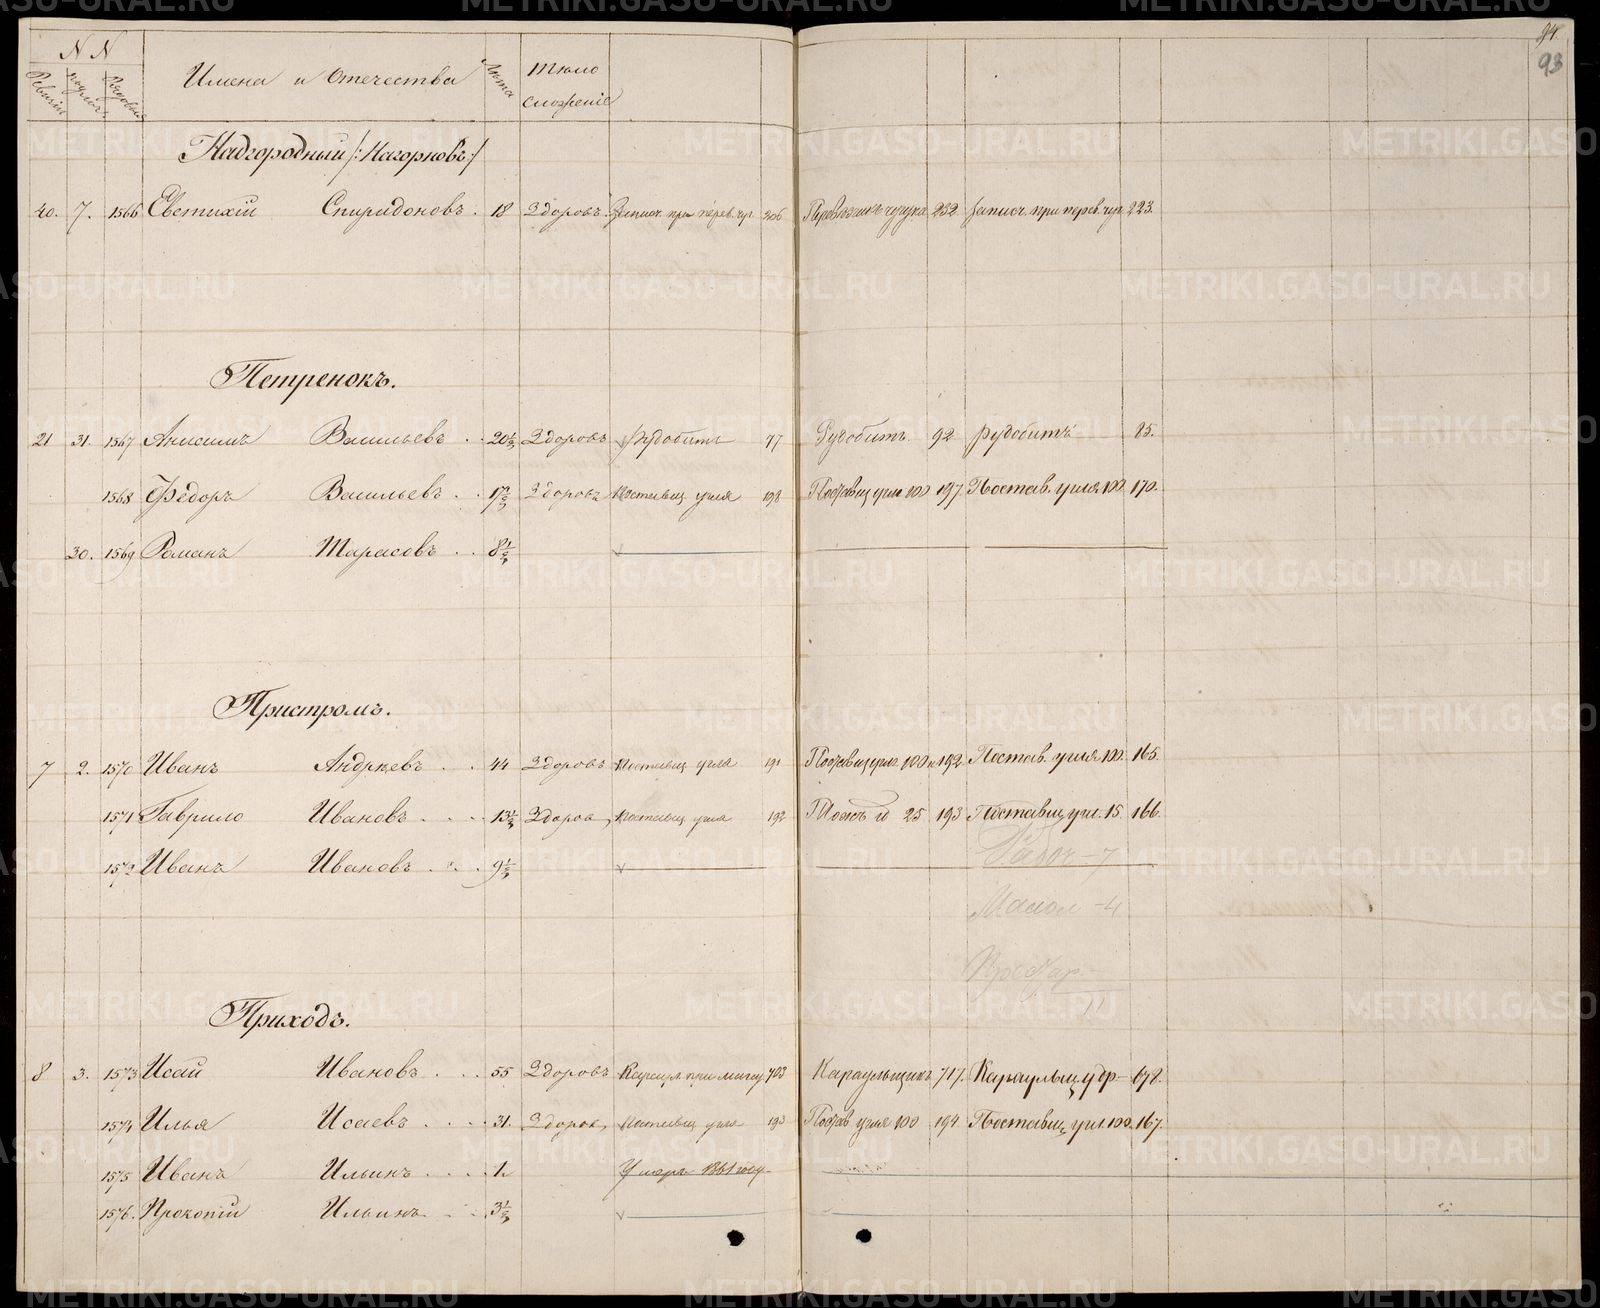 94
93
№ №
Ревизіи
посудн.
Рядовыя
Имена и Отечества
Лѣта
Тѣло
сложеніе
Надгородный /:Нагорновъ:/
40. 7. 1566 Евтихій Спиридоновъ. 18 Здоровъ Записч. при перев. чуг. 206 Перевозкѣ чугуна 232 Записч. при перев. чуг. 223.
Петренокъ.
21 31. 1567 Анисимъ Васильевъ . . 20½ Здоровъ рудобитъ 77 Рудобитъ 92 рудобитъ 85.
1568 Ѳедоръ Васильевъ . . 17½ Здоровъ Поставщ угля 198 Поставщ угля 100 197 Постав. угля 100. 170.
30. 1569 Романъ Тарасовъ . . 8½
Пристромъ.
7 2. 1570 Иванъ Андреевъ . . 44 Здоровъ Поставщ угля 191 Поставщ угля 100 192 Постав. угля 100. 165.
1571 Гаврило Ивановъ . . . . 13½ Здоров Поставщ угля 192 25 193 Поставщ угл. 15. 166.
1572 Иванъ Ивановъ . . . 9½
Работ - 7
Малол - 4
11
Приходъ.
8 3. 1573 Исай Ивановъ . . . 55 Здоровъ Караул. при магаз 703 Караульщикъ 717. Караульщ 678.
1574 Илья Исаевъ . . . . 31. Здоров Поставщ угля 193 Постав угля 100 194 Поставщ угл. 100. 167.
1575 Иванъ Ильинъ . . . . 1. Умеръ 1861 году
1576. Прокопій Ильинъ . . . 3½